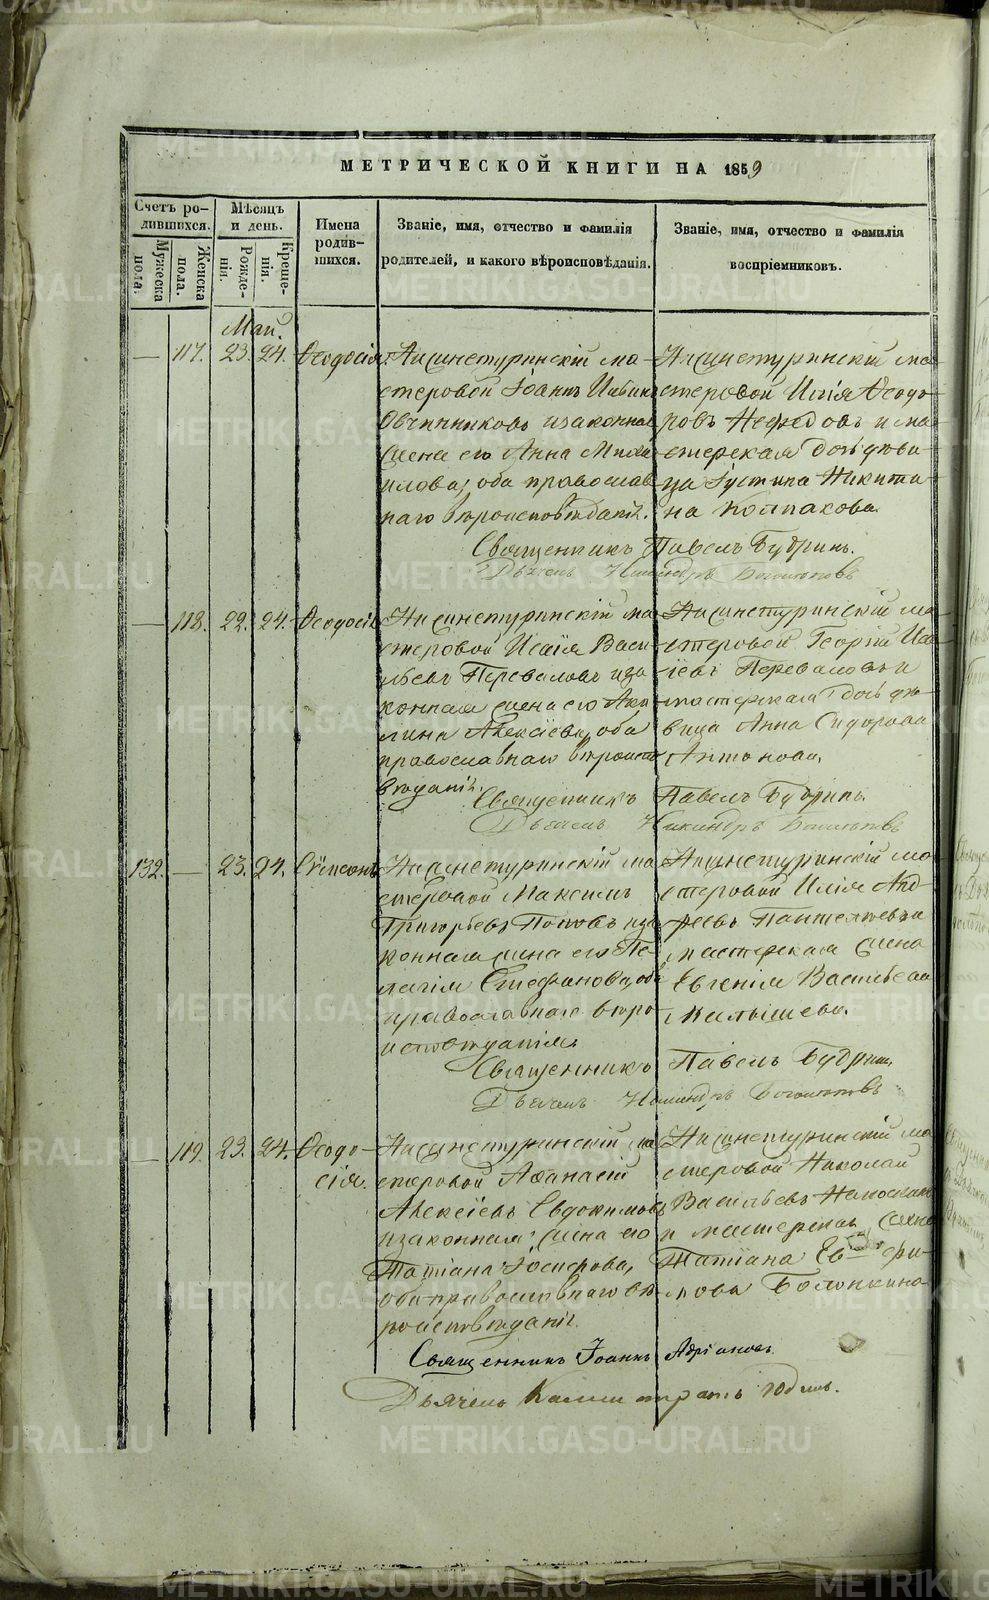 МЕТРИЧЕСКОЙ КНИГИ НА 1859
Счетъ ро-
дившихся.
Мужеска
пола.
Женска
пола.
Мѣсяцъ
и день.
Рожде-
нія.
Креще-
нія.
Имена
родив-
шихся.
Званіе, имя, отчество и фамилія
родителей, и какого вѣроисповѣданія.
Званіе, имя, отчество и фамилія
воспріемниковъ.
Маи.
— 117. 23. 24. Ѳеодосія
Нижнетуринскій ма-
стеровой Іоаннъ
Овчинниковъ и законная
жена его Анна Михаи
илова; оба православ
наго вѣроисповѣданія.
Нижнетуринскій ма-
стеровой Илія Ѳеодо-
ровъ Нефедовъ и ма-
стерская дочь дѣви-
ца Іустина Никити-
на Колпакова.
Священникъ Павелъ Будринъ.
Дьячекъ Никандръ
— 118. 22. 24. Ѳеодосія
Нижнетуринскій ма-
стеровой Исаія Васи
льевъ Переваловъ и за
конная жена его Аки
лина Алексіева, оба
православнаго вѣроиспо
вѣданія.
Нижнетуринскій ма-
стеровой Георгій Иса
іевъ Переваловъ и
мастерская дочь дѣ-
вица Анна Сидорова
Антонова.
Священникъ Павелъ Будринъ.
Дьячекъ Никандръ
132. — 23. 24. Сѵмеонъ
Нижнетуринскій ма-
стеровой Максимъ
Григорьевъ Поповъ и за
конная жена его Пе-
лагія Стефанова, оба
православнаго вѣро-
исповѣданія.
Нижнетуринскій ма-
стеровой Илія Анд-
реевъ Пантелѣевъ и
мастерская жена
Евгенія Васильева
Малышева.
Священникъ Павелъ Будринъ,
Дьячекъ Никандръ
— 119. 23. 24. Ѳеодо-
сія.
Нижнетуринскій ма
стеровой Аѳанасій
Алексіевъ Евдокимовъ
и законная жена его
Татіана Іосифова,
оба православнаго вѣ-
роисповѣданія.
Нижнетуринскій ма-
стеровой Николай
Васильевъ
и мастерская жена
Татіана Ев фи-
мова Болонкина
Священникъ Іоаннъ Адріановъ
Дьячекъ Каллистратъ Юдинъ.
METRIKI.GASO-URAL.RU